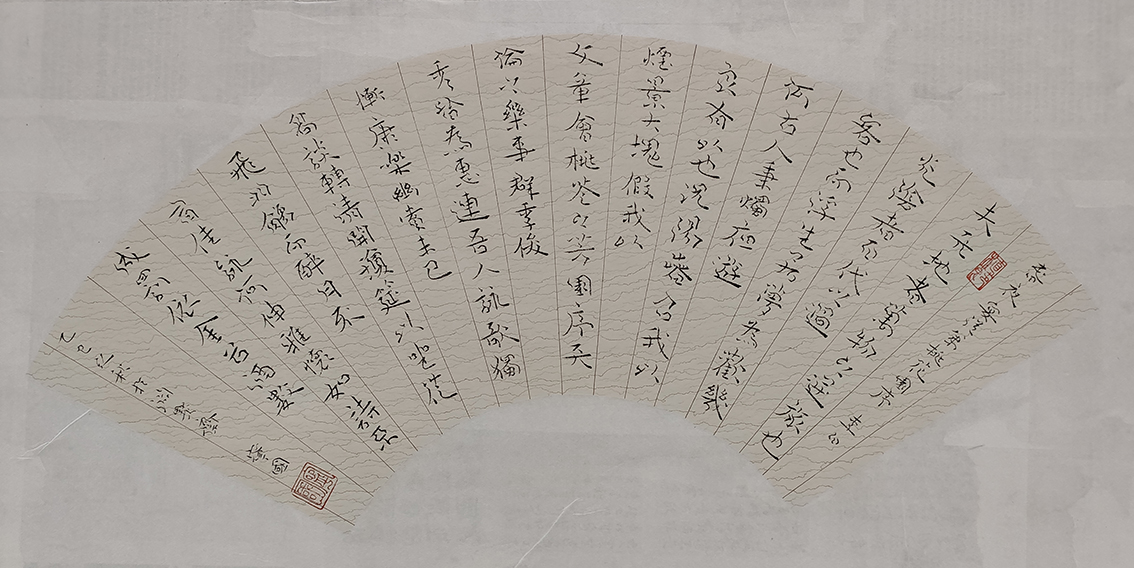 春夜宴從弟桃花園序 李白
夫天地者萬物之逆旅也
光陰者百代之過
客也而浮生若夢為歡幾
何古人秉燭夜遊
良有以也況陽春召我以
煙景大塊假我以
文章會桃花之芳園序天
倫之樂事群季俊
秀皆為惠連吾人詠歌獨
慚康樂幽賞未已
高談轉清開瓊筵以坐花
飛羽觴而醉月不
有佳詠何伸雅懷如詩不
成罰依金谷酒數
乙巳之秋於